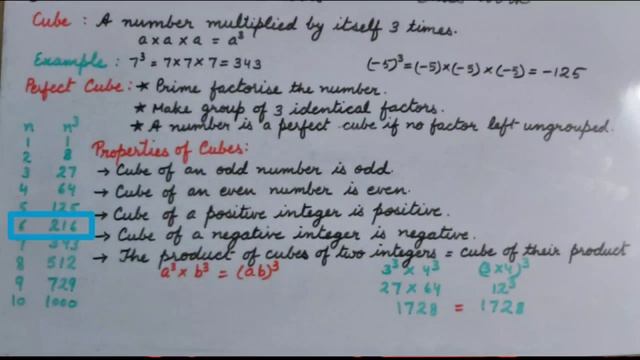 Cube : A number multiplied by itself 3 times.
a×a×a = a³
Example : 7³ = 7×7×7 = 343 (-5)³ = (-5)×(-5)×(-5) = -125
Perfect Cube : * Prime factorise the number.
* Make group of 3 identical factors.
* A number is a perfect cube if no factor left ungrouped.
n n³
1 1
2 8
3 27
4 64
5 125
6 216
7 343
8 512
9 729
10 1000
Properties of Cubes:
→ Cube of an odd number is odd.
→ Cube of an even number is even.
→ Cube of a positive integer is positive.
→ Cube of a negative integer is negative.
→ The product of cubes of two integers = cube of their product
a³ × b³ = (ab)³
3³ × 4³ (3×4)³
27 × 64 12³
1728 = 1728